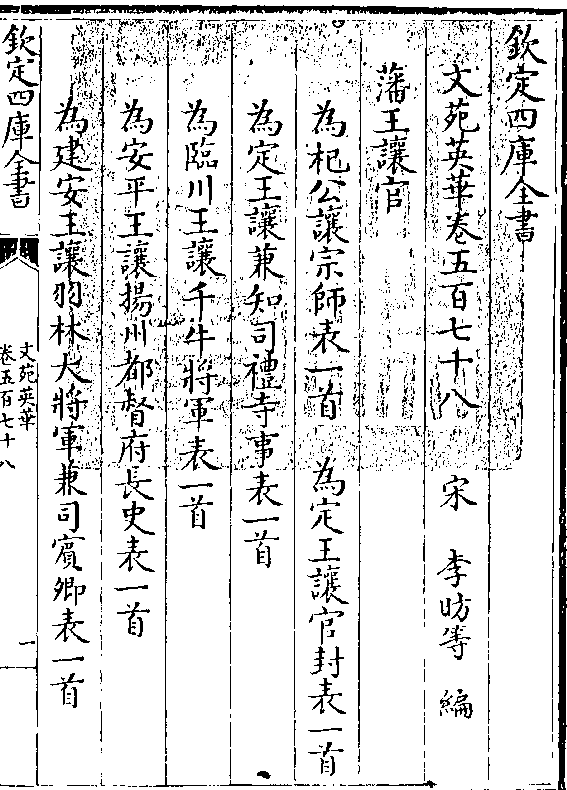 欽定四庫全書
文苑英華卷五百七十八
宋　李昉等　編
藩王讓官
為杞公讓宗師表一首　為定王讓官封表一首
為定王讓兼知司禮寺事表一首
為臨川王讓千牛將軍表一首
為安平王讓揚州都督府長史表一首
為建安王讓羽林大將軍兼司賓卿表一首
欽定四庫全書
文苑英華
卷五百七十八
一